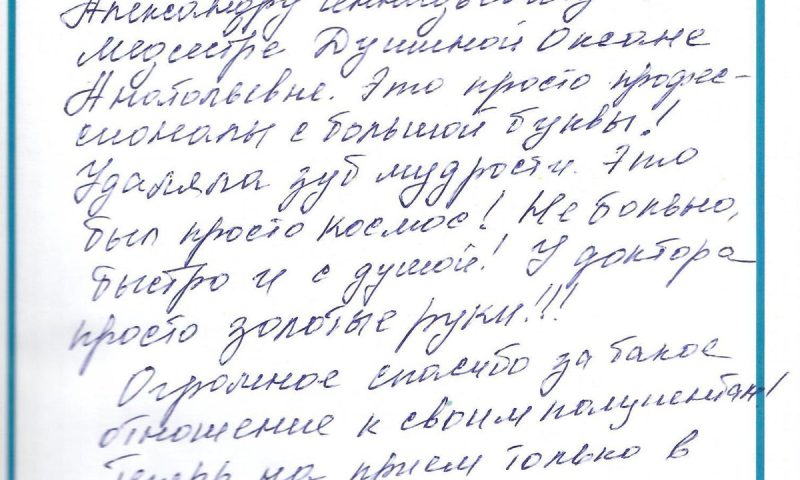 Александру Геннадьевичу
медсестре Душиной Оксане
Анатольевне. Это просто профес-
сионалы с большой буквы!
Удаляла зуб мудрости. Это
был просто космос! Не больно,
быстро и с душой! У доктора
просто золотые руки!!!
Огромное спасибо за такое
отношение к своим пациентам!
Теперь на прием только в